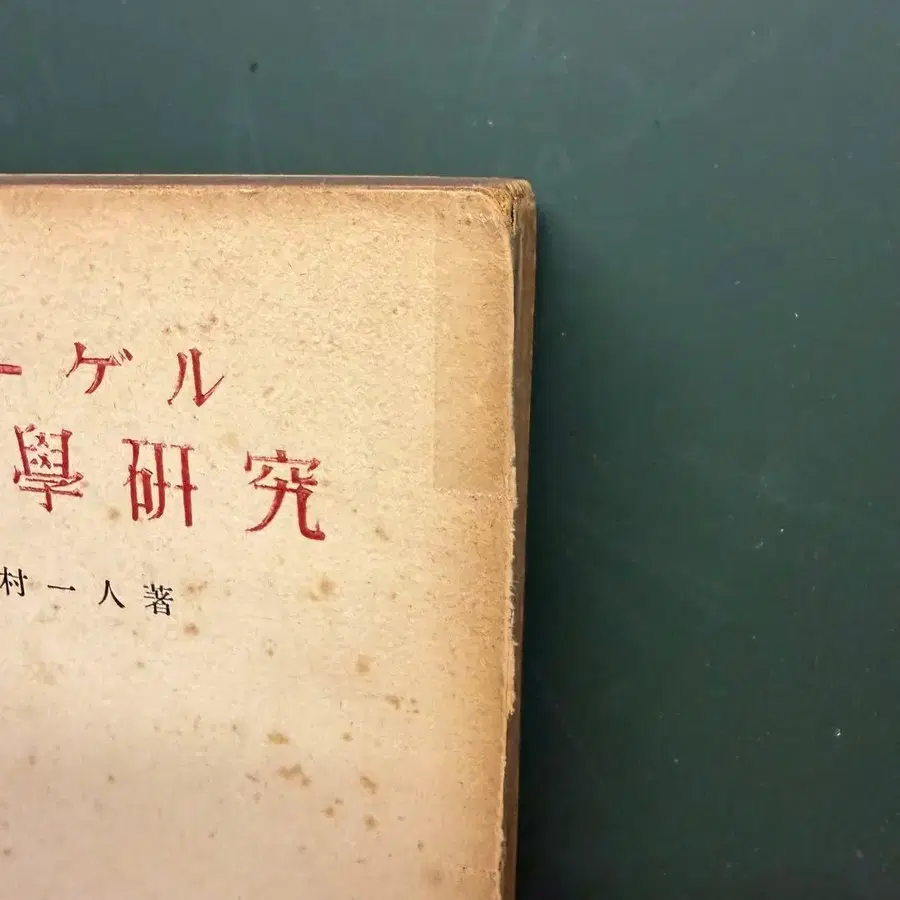 ーゲル
學研究
村一人著